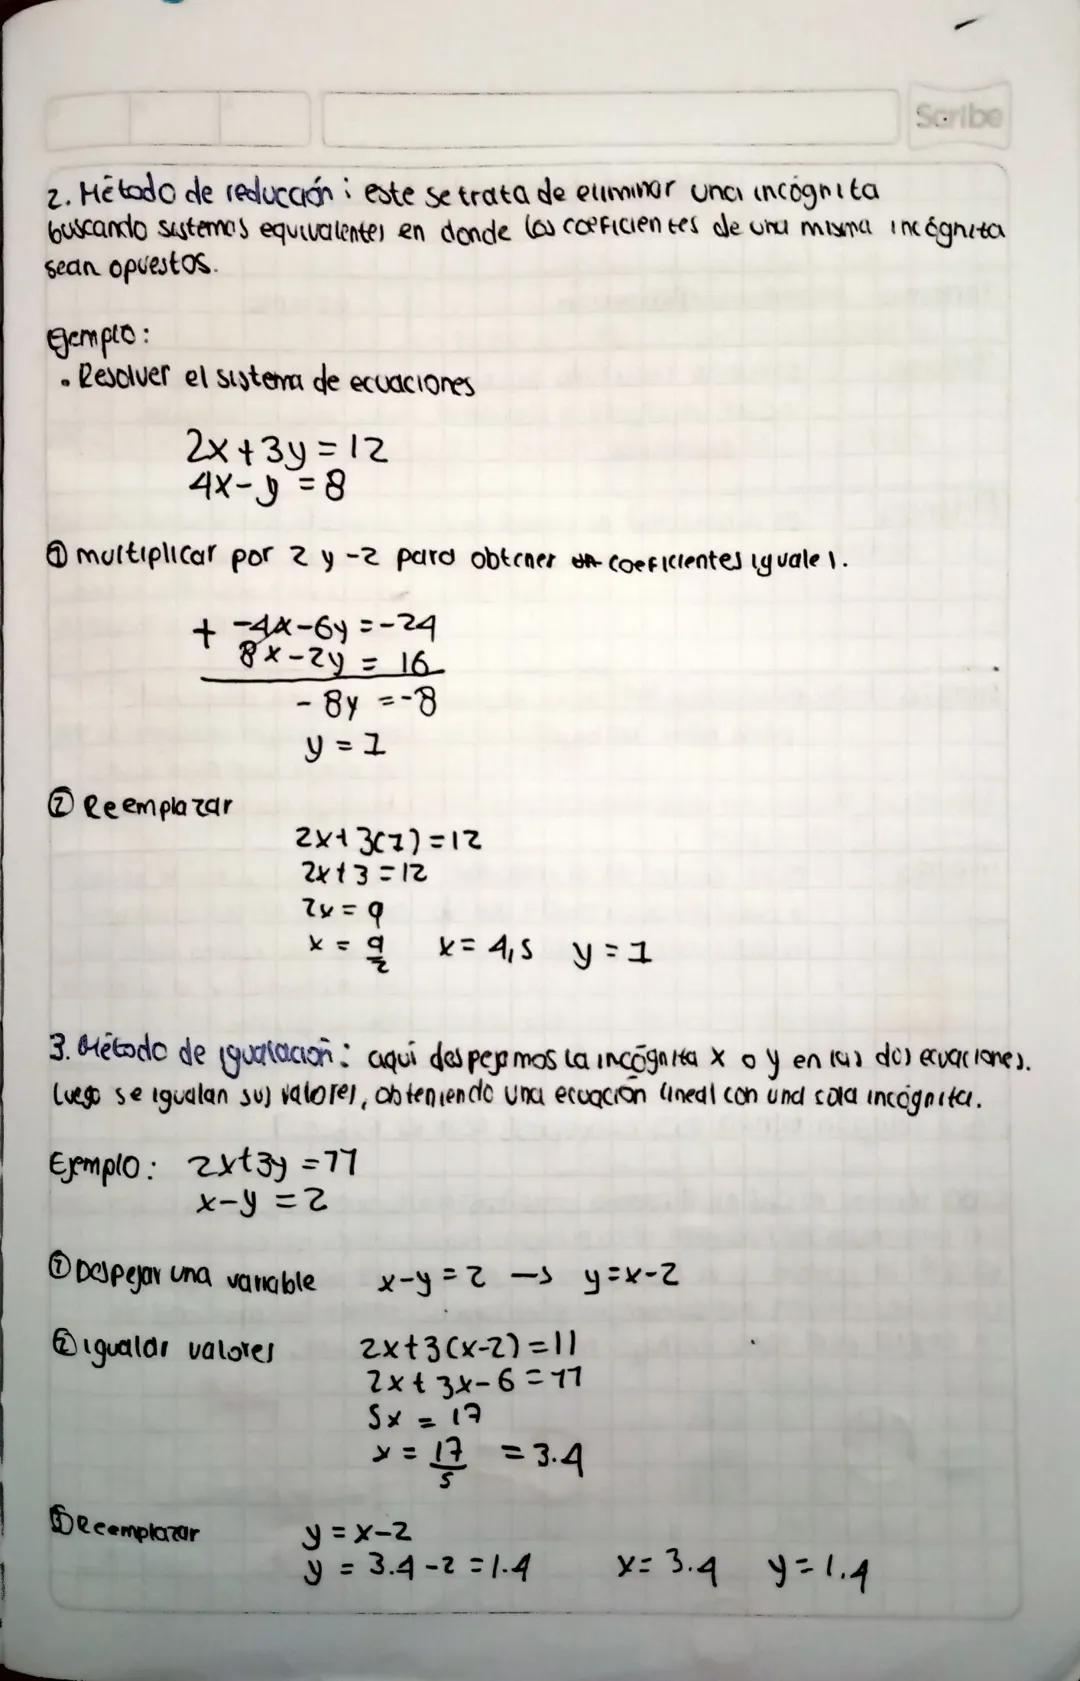 Scribe
2. Método de reducción: este se trata de eliminar una incógnita
buscando sistemas equivalentes en donde los coeficientes de una misma incógnita
sean opuestos.
Ejemplo:
• Resolver el sistema de ecuaciones
2x+3y=12
4x-y=8
① multiplicar por 2 y -2 para obtener coeficientes iguales.
+ -4x-6y=-24
8x-2y=16
-8y=-8
y=1
② Reemplazar
2x+3(1)=12
2x+3=12
2x=9
x=9/2 x=4,5 y=1
3. Método de igualación: aquí despejamos la incógnita x o y en las dos ecuaciones.
Luego se igualan sus valores, obteniendo una ecuación lineal con una sola incógnita.
Ejemplo: 2x+3y=11
x-y=2
① Despejar una variable x-y=2 → y=x-2
② igualar valores 2x+3(x-2)=11
2x+3x-6=11
5x=17
x=17/5 =3.4
③ Reemplazar y=x-2
y=3.4-2=1.4 x=3.4 y=1.4